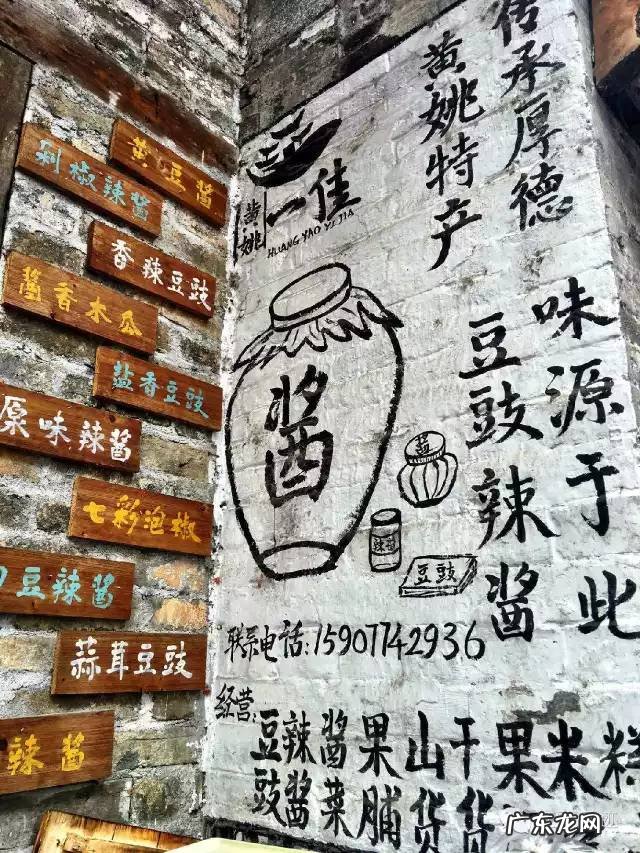 黄豆酱
剁椒辣酱
香辣豆豉
醬香木瓜
盐香豆豉
原味辣酱
七彩泡椒
豆辣酱
蒜茸豆豉
辣酱
传承厚德
味源于此
黄姚特产
豆豉辣酱
黄姚
一佳
HUANG YAO YI JIA
酱
豆豉
联系电话:15907742936
经营:
豆豉
辣酱
酱菜
果脯
山货
干货
果
米
糕
广东龙网